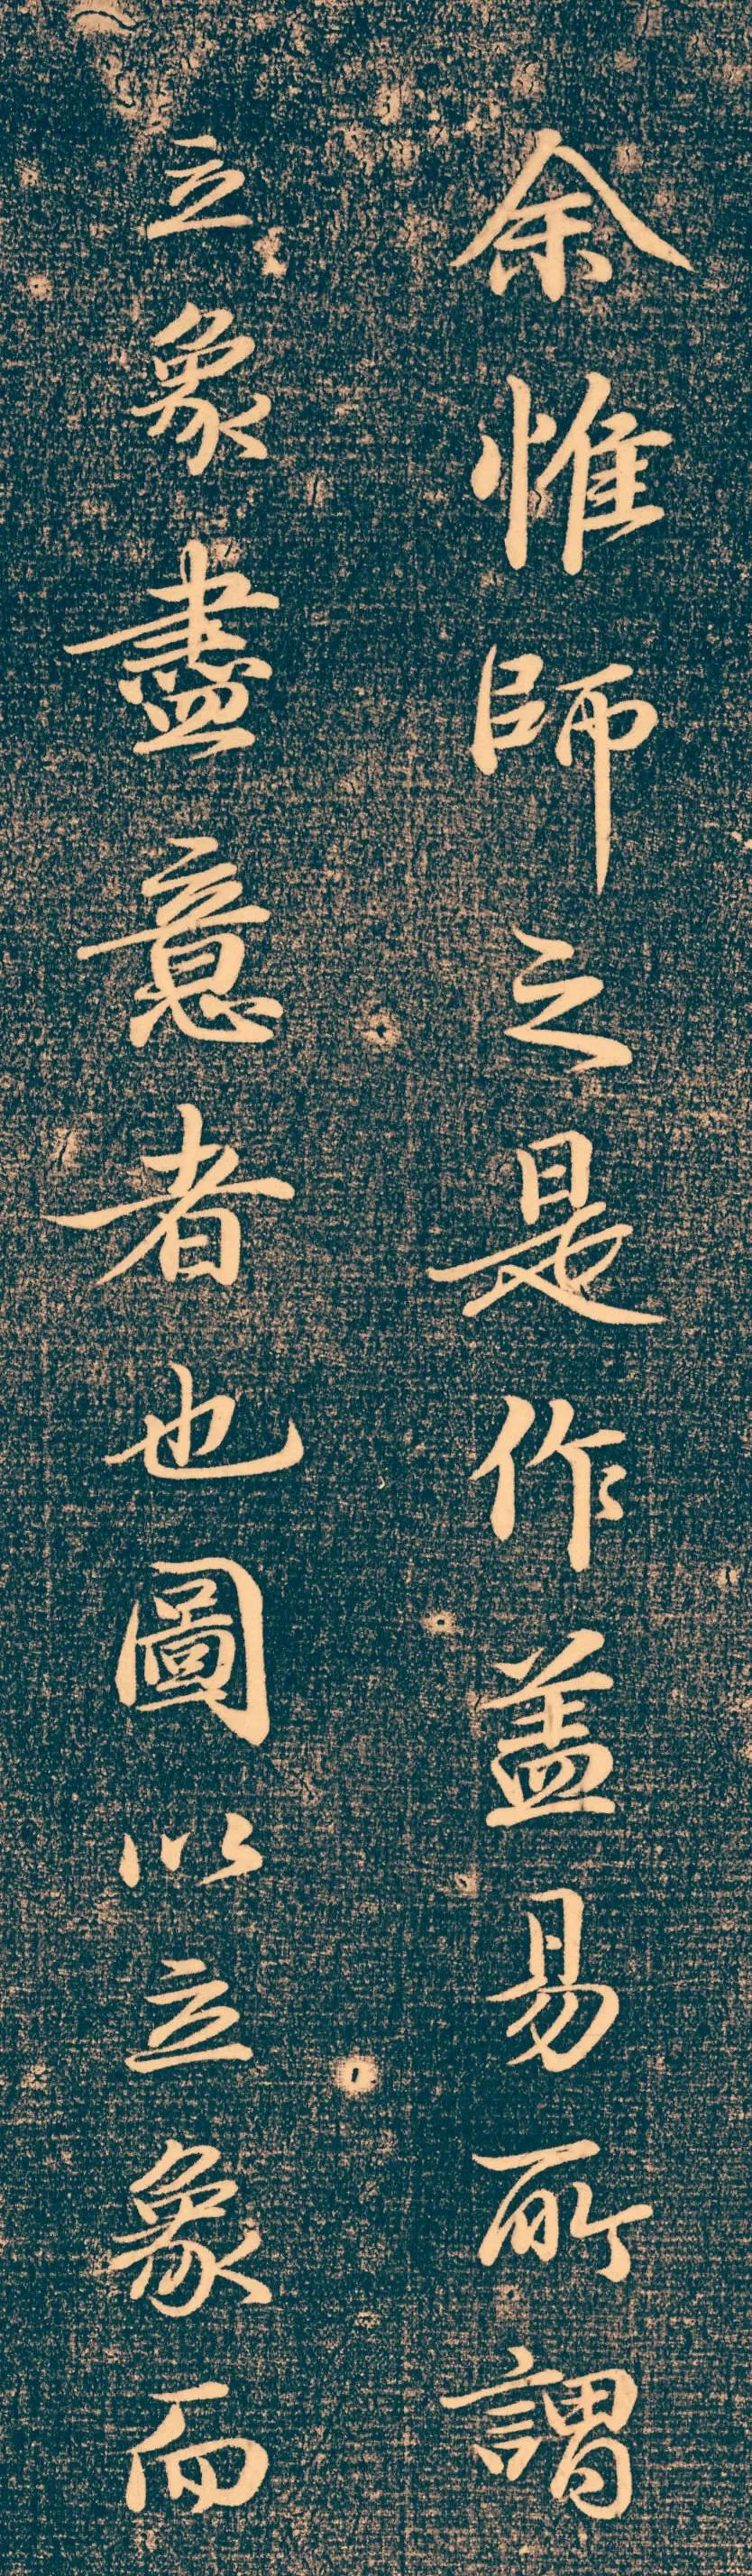 余惟師之是作盖易所謂
立象盡意者也圖以立象而